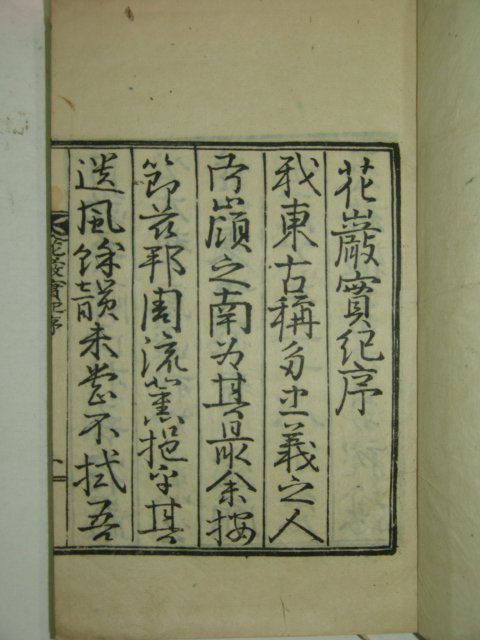 花巖實紀序
我東古稱多忠義之人
而嶺之南為其最余按
節玆邦周流舊挹乎其
遺風餘韻未嘗不拭吾
花巖實紀序